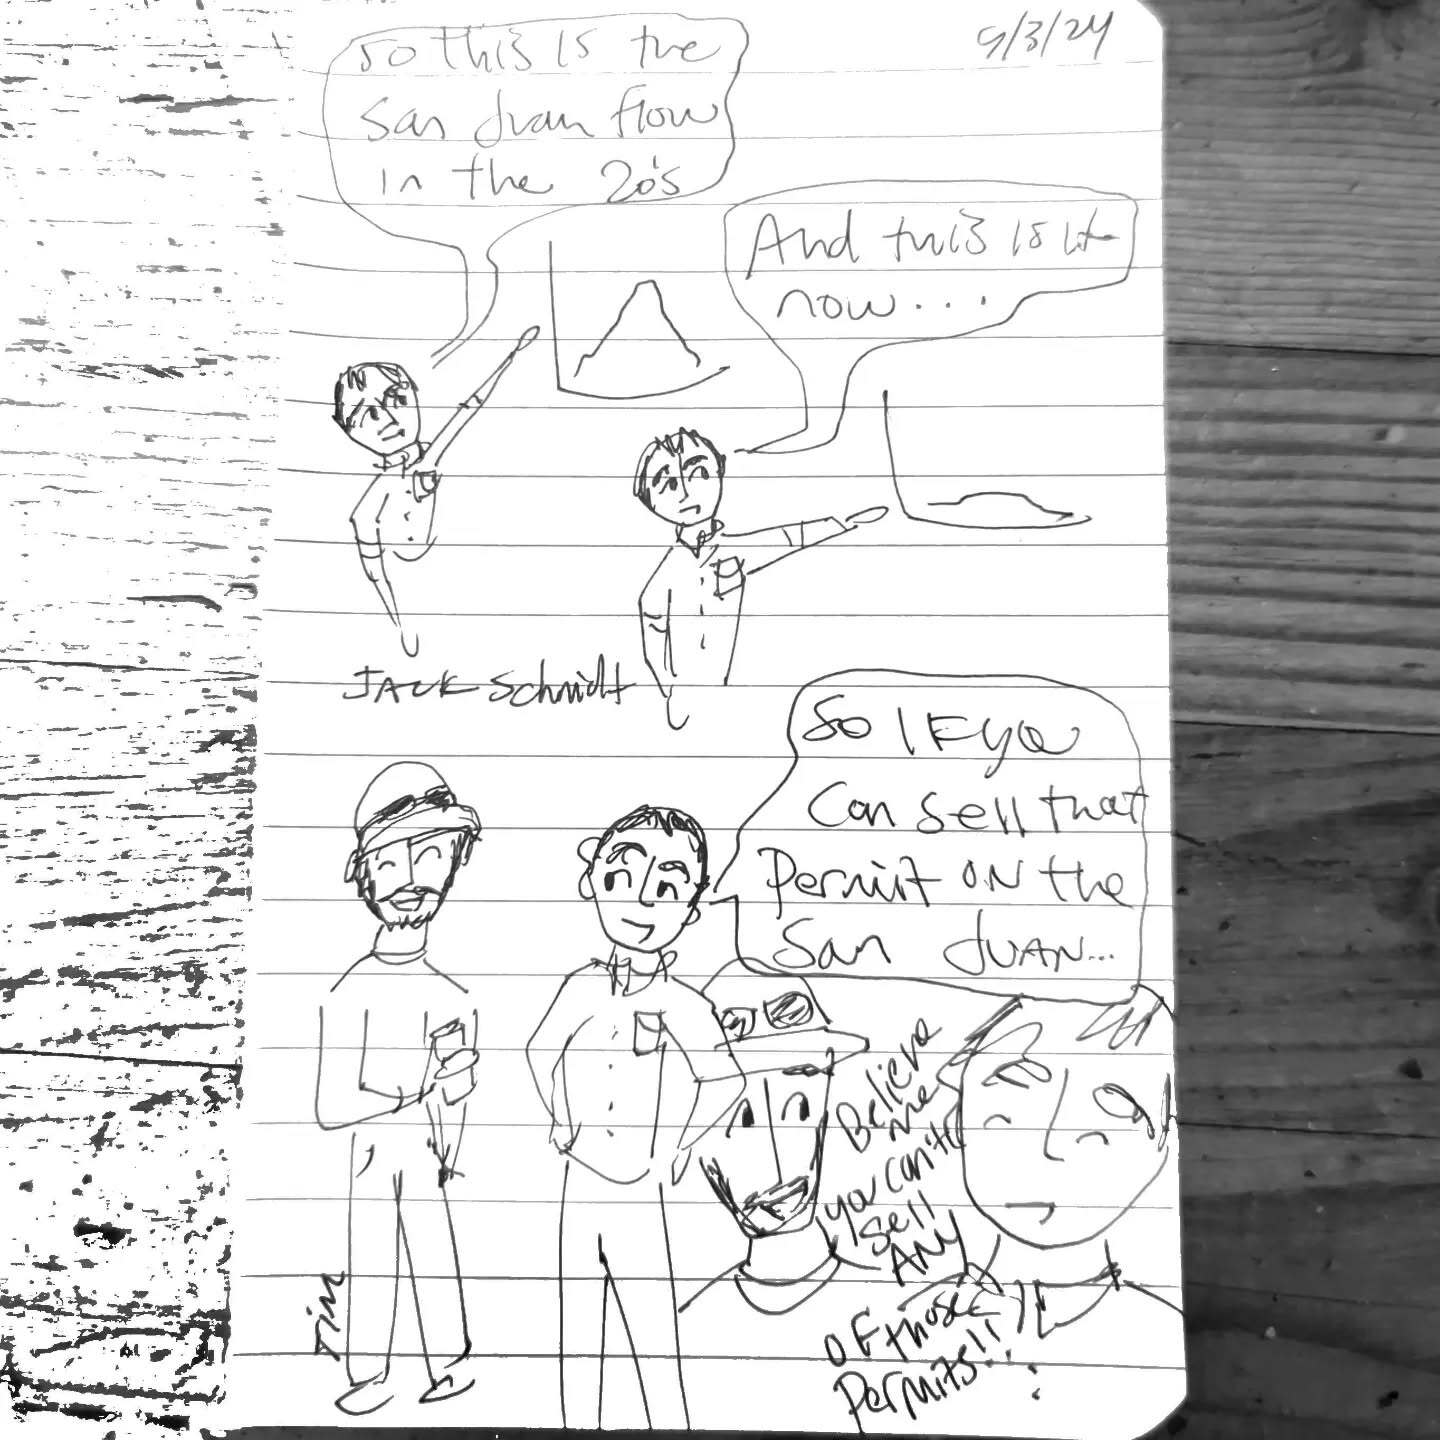 9/3/24
So this is the
San Juan flow
in the 20's
And this is
now...
JACK Schmidt
So IF you
Can sell that
Permit ON the
San JUAN...
Believe
me
you can't
sell
ANY
OF those
Permits!!
Tim